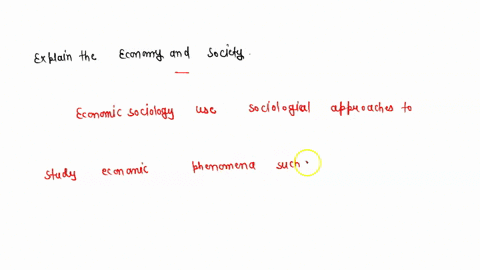 Explain the Economy and Society.
Economic sociology use sociological approaches to
study economic phenomena such